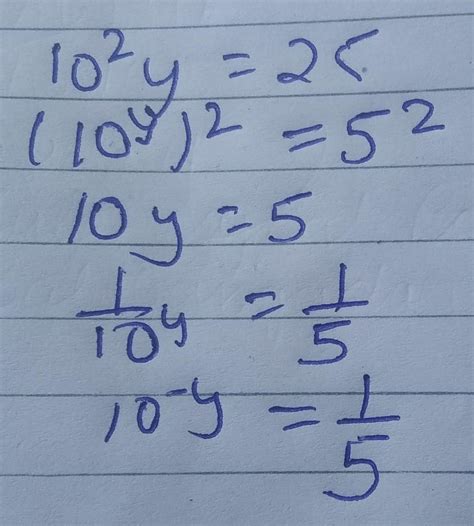 10²y = 25
(10^y)² = 5²
10y = 5
1/10^y = 1/5
10^-y = 1/5